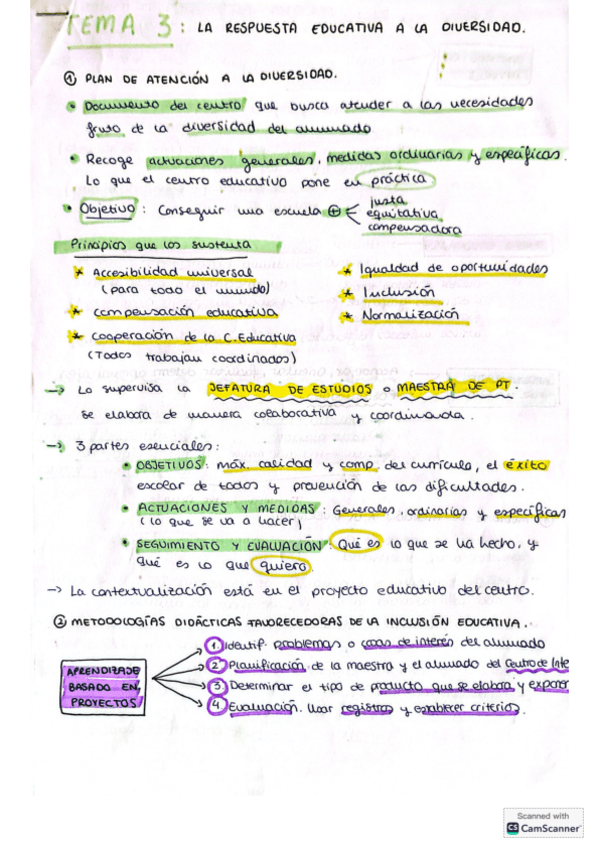 TEMA 3: LA RESPUESTA EDUCATIVA A LA DIVERSIDAD.
① PLAN DE ATENCIÓN A LA DIVERSIDAD.
• Documento del centro que busca atender a las necesidades
fruto de la diversidad del alumnado
• Recoge actuaciones generales, medidas ordinarias y específicas.
Lo que el centro educativo pone en práctica
• Objetivo: Conseguir una escuela ⊕ < justa
equitativa
compensadora
Principios que los sustenta
★ Accesibilidad universal
(para todo el mundo)
★ compensación educativa
★ cooperación de la C.Educativa
(Todos trabajan coordinados)
★ Igualdad de oportunidades
★ Inclusión
★ Normalización
→ Lo supervisa la JEFATURA DE ESTUDIOS o MAESTRA DE PT.
se elabora de manera colaborativa y coordinada.
→ 3 partes esenciales:
• OBJETIVOS: máx. calidad y comp. del currículo, el éxito
escolar de todos y prevención de las dificultades.
• ACTUACIONES Y MEDIDAS: Generales, ordinarias y específicas
(lo que se va a hacer)
• SEGUIMIENTO Y EVALUACIÓN: Qué es lo que se ha hecho, y
qué es lo que quiero.
→ La contextualización está en el proyecto educativo del centro.
② METODOLOGÍAS DIDÁCTICAS FAVORECEDORAS DE LA INCLUSIÓN EDUCATIVA.
APRENDIZAJE
BASADO EN
PROYECTOS
1. Identif. problemas o cosas de interés del alumnado
2. Planificación de la maestra y el alumnado del Centro de Inte
3. Determinar el tipo de producto que se elabora y exponer
4. Evaluación. Usar registros y establecer criterios.
Scanned with
CS CamScanner